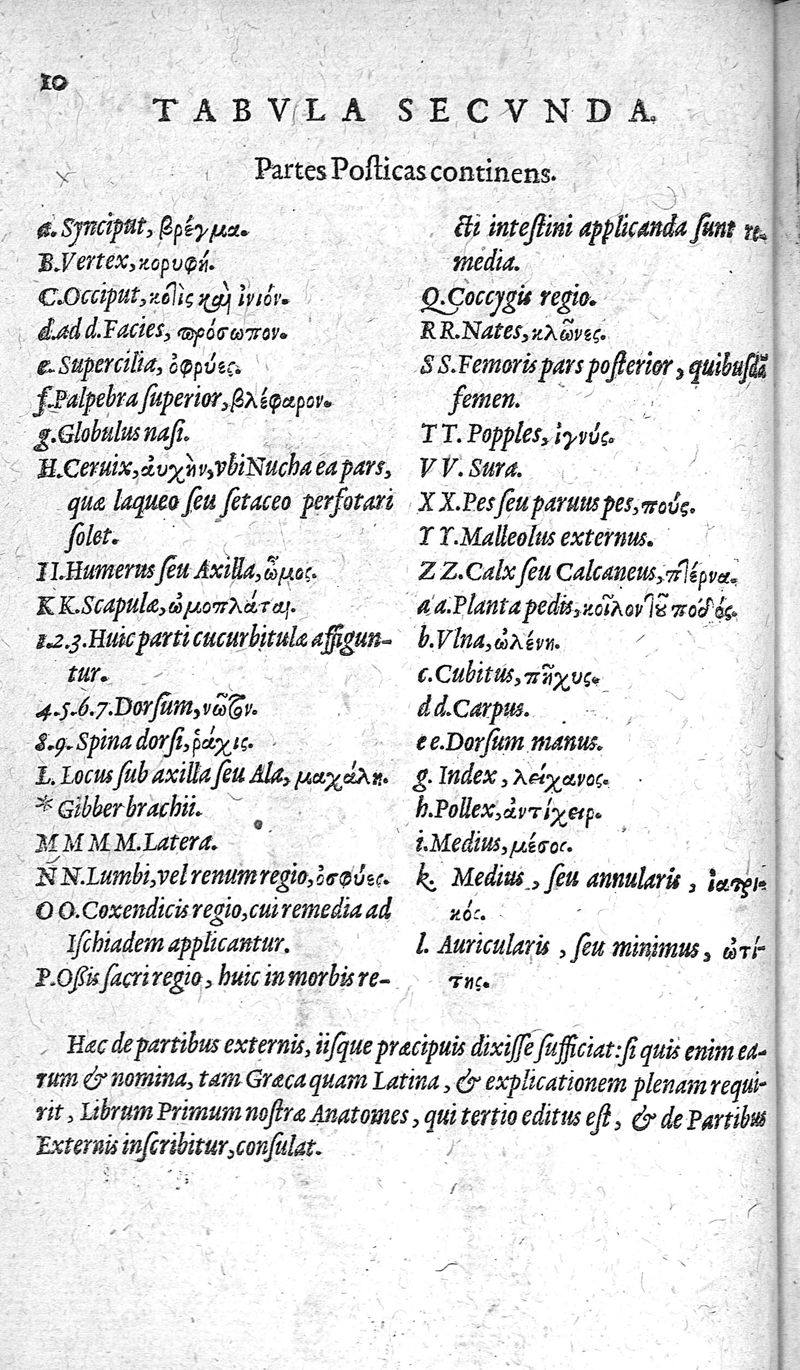 10
TABVLA SECVNDA.
Partes Poſticas continens.
a. Synciput, βρέγμα.
B. Vertex, κορυφή.
C. Occiput, κοτὶς καὶ ἰνιόν.
d. ad d. Facies, πρόσωπον.
e. Supercilia, ὀφρύες.
f. Palpebra ſuperior, βλέφαρον.
g. Globulus naſi.
H. Ceruix, ἀυχὴν, vbi Nucha ea pars,
quæ laqueo ſeu ſetaceo perforari
ſolet.
I I. Humerus ſeu Axilla, ὦμος.
K K. Scapulæ, ὠμοπλάται.
1.2.3. Huic parti cucurbitulæ affigun-
tur.
4.5.6.7. Dorſum, νῶτον.
8.9. Spina dorſi, ῥάχις.
L. Locus ſub axilla ſeu Ala, μαχάλη.
* Gibber brachii.
M M M M. Latera.
N N. Lumbi, vel renum regio, ὀσφύες.
O O. Coxendicis regio, cui remedia ad
Iſchiadem applicantur.
P. Oſsis ſacri regio, huic in morbis re-
cti inteſtini applicanda ſunt re-
media.
Q. Coccygis regio.
R R. Nates, κλῶνες.
S S. Femoris pars poſterior, quibuſdã
femen.
T T. Popples, ἰγνύς.
V V. Sura.
X X. Pes ſeu paruus pes, πούς.
Y Y. Malleolus externus.
Z Z. Calx ſeu Calcaneus, πτέρνα.
a a. Planta pedis, κοῖλον τοῦ ποδός.
b. Vlna, ὠλένη.
c. Cubitus, πῆχυς.
d d. Carpus.
e e. Dorſum manus.
g. Index, λείχανος.
h. Pollex, ἀντίχειρ.
i. Medius, μέσος.
k. Medius, ſeu annularis, ἰατρι-
κός.
l. Auricularis, ſeu minimus, ὠτί-
της.
Hæc de partibus externis, iiſque præcipuis dixiſſe ſufficiat: ſi quis enim ea-
rum & nomina, tam Græca quam Latina, & explicationem plenam requi-
rit, Librum Primum noſtræ Anatomes, qui tertio editus eſt, & de Partibus
Externis inſcribitur, conſulat.